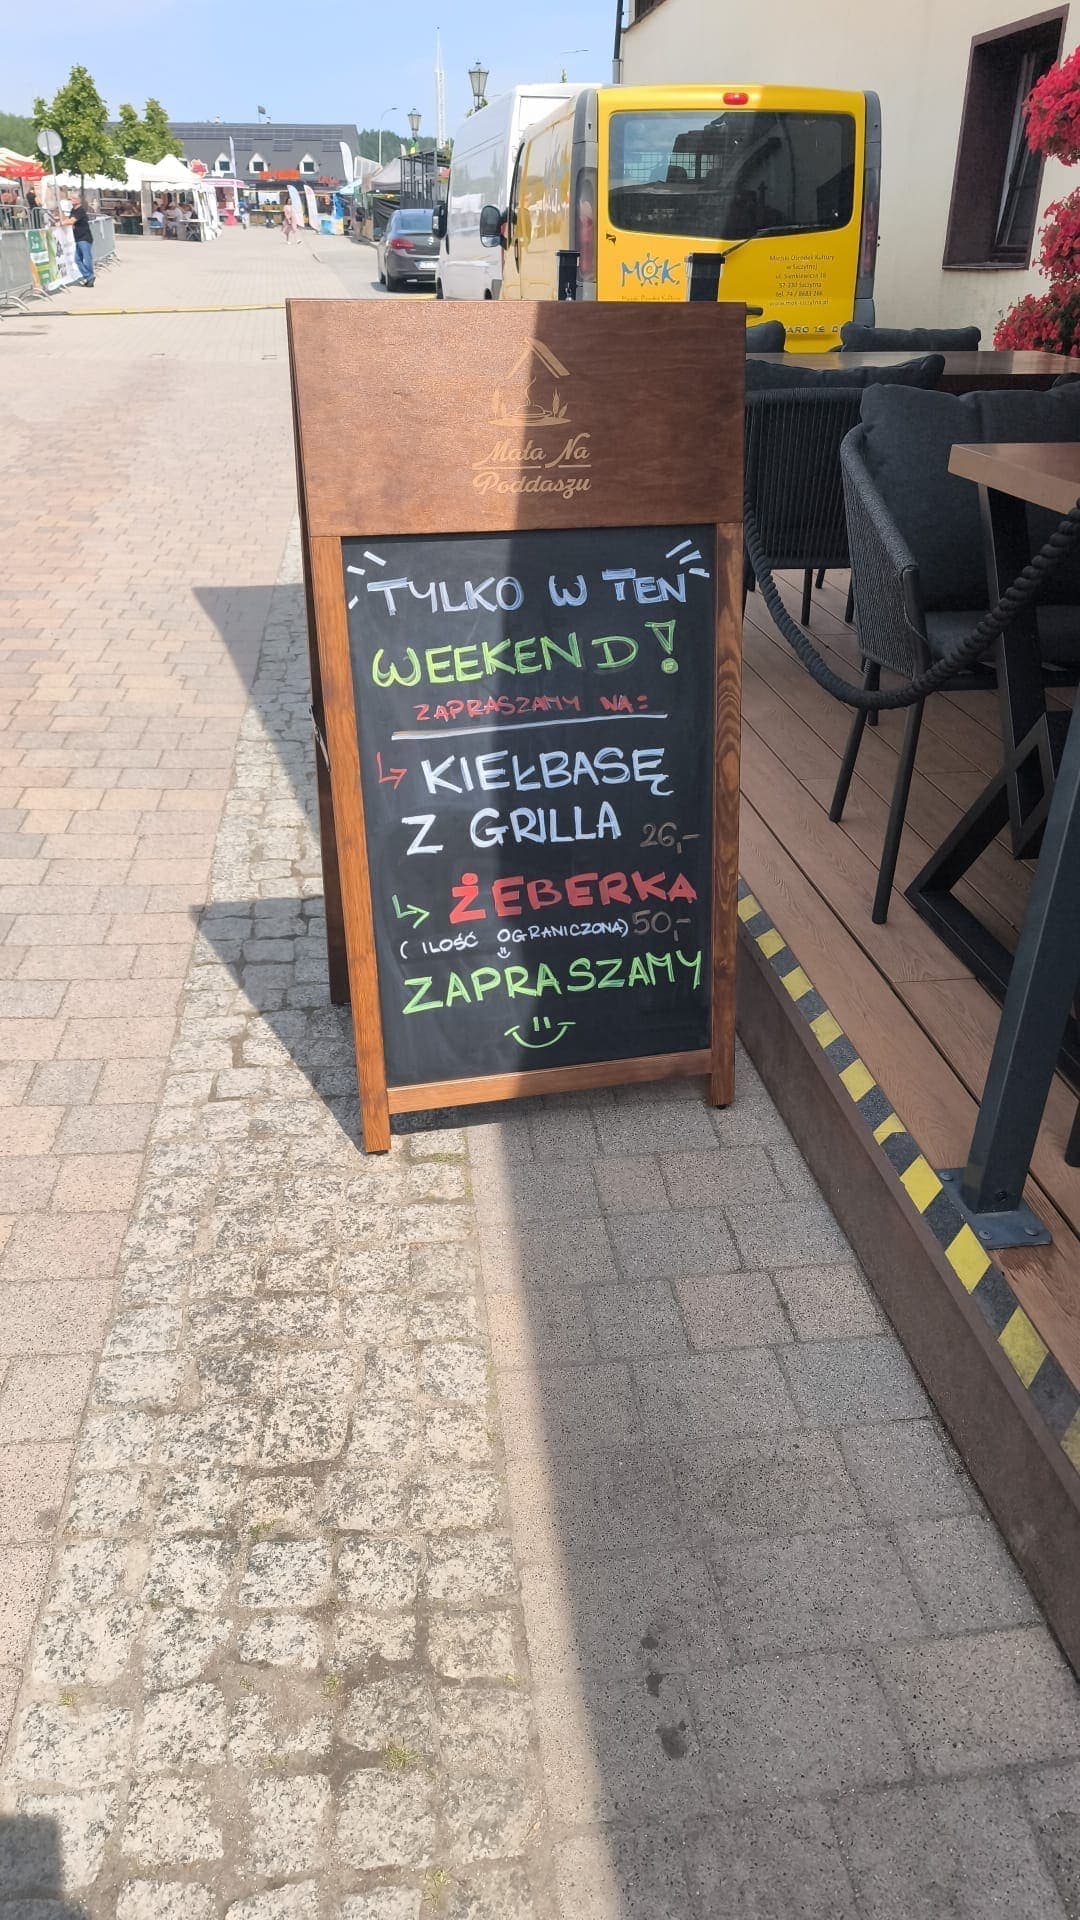 M.O.K.
Miejski Ośrodek Kultury
w Szczytnej
ul. Sienkiewicza 18
57-330 Szczytna
tel. 74 / 8683 266
www.mok-szczytna.pl
Mała Na
Poddaszu
TYLKO W TEN
WEEKEND!
ZAPRASZAMY NA:
↳ KIEŁBASĘ
Z GRILLA 26,-
↳ ŻEBERKA
(ILOŚĆ OGRANICZONA) 50,-
ZAPRASZAMY